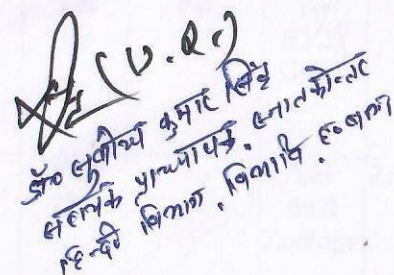 (U.R.)
डॉ० सुबोध कुमार सिंह
सहायक प्राध्यापक, स्नातकोत्तर
हिन्दी विभाग, विभावि, हजा०